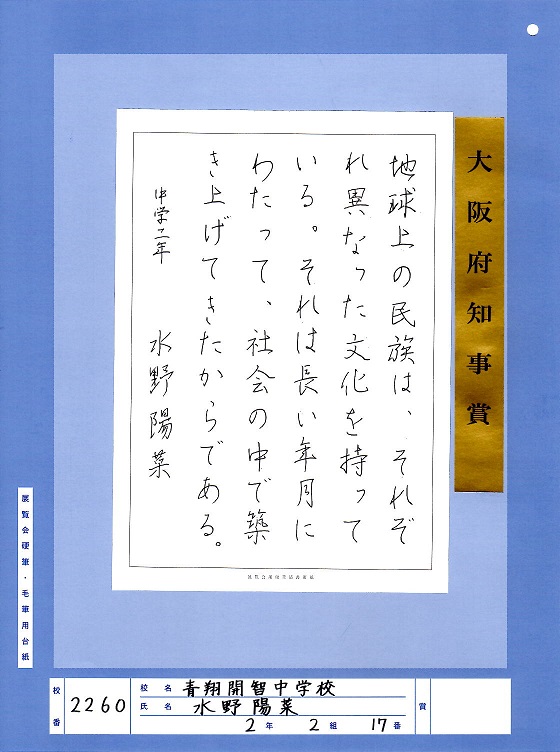 大阪府知事賞
地球上の民族は、それぞ
れ異なった文化を持って
いる。それは長い年月に
わたって、社会の中で築
き上げてきたからである。
中学二年　水野陽菜
展覧会硬筆・毛筆用台紙
校番 2260
校名 青翔開智中学校
氏名 水野陽菜
2年 2組 17番
賞